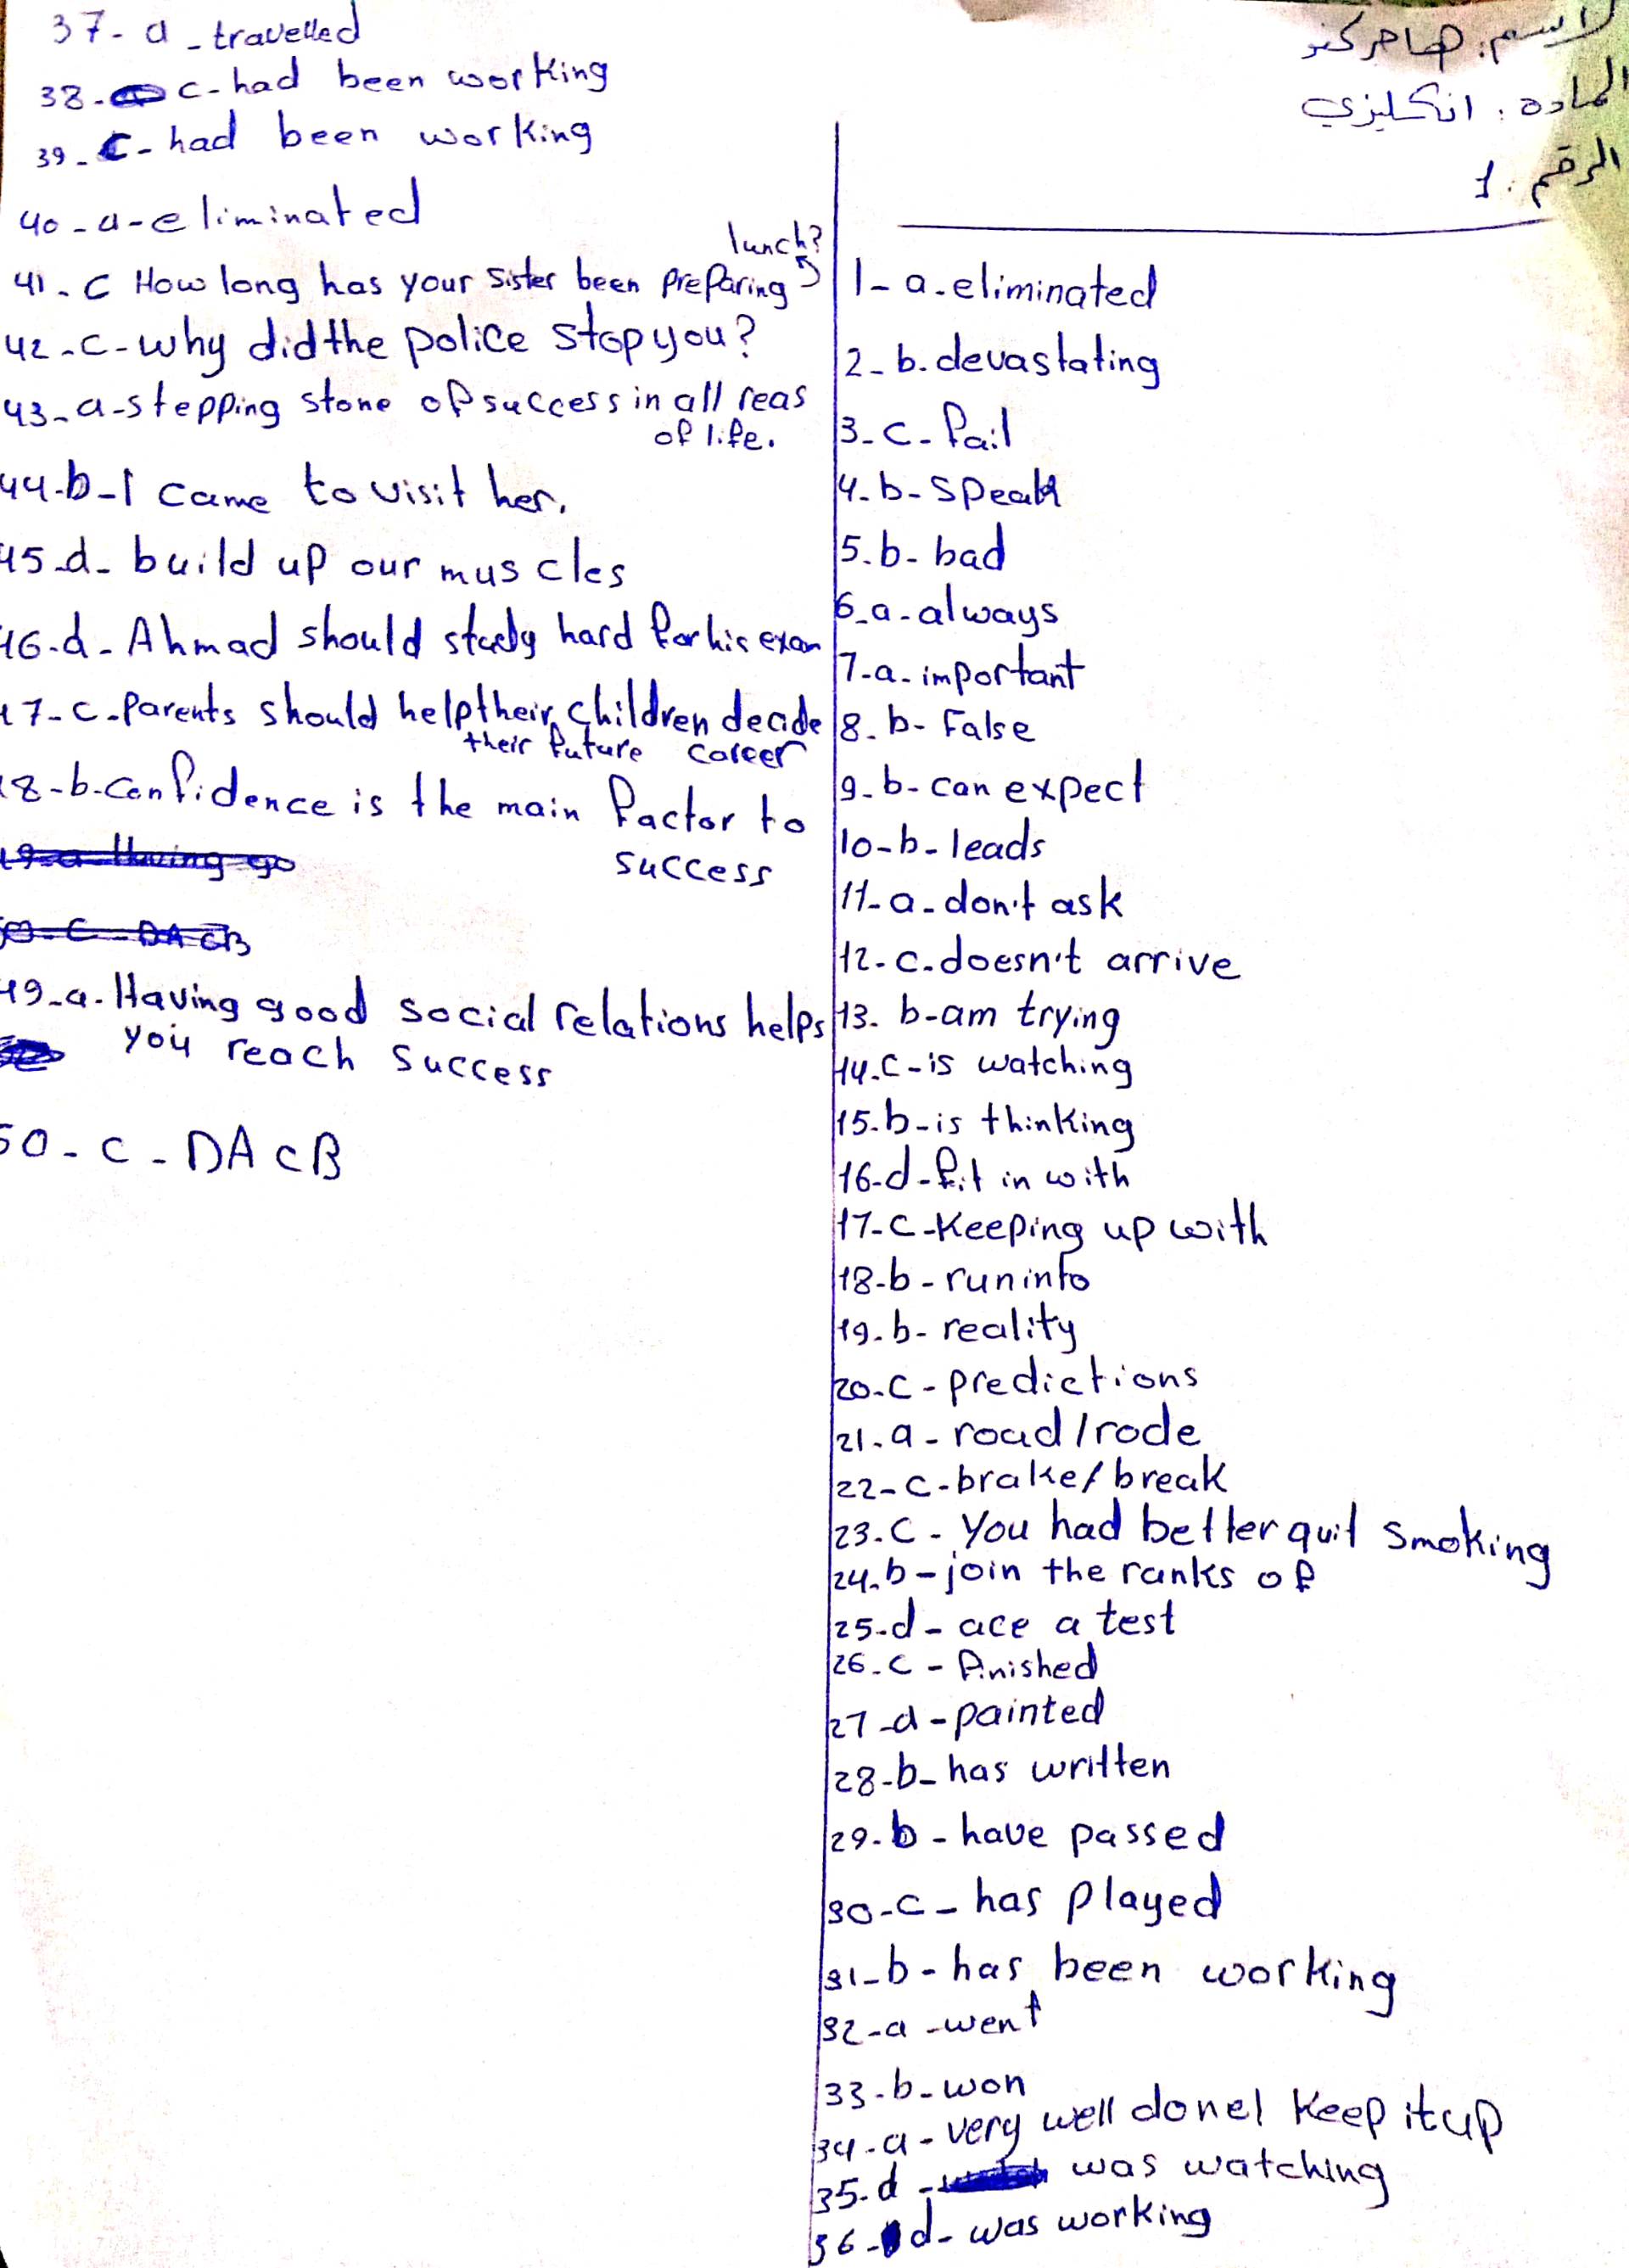 الاسم: هاجر كنو
المادة: انكليزي
الرقم: 1
1- a. eliminated
2- b. devastating
3- c- fail
4- b- speak
5. b- bad
6_a- always
7-a- important
8- b- False
9- b- can expect
10-b- leads
11- a- don't ask
12- c. doesn't arrive
13. b-am trying
14. c-is watching
15. b-is thinking
16-d-fit in with
17-c-Keeping up with
18-b-run into
19- b- reality
20-c-predictions
21. a- road/rode
22-c-brake/break
23. c- You had better quit smoking
24. b-join the ranks of
25-d- ace a test
26-c- finished
27-d-painted
28-b- has written
29- b- have passed
30-c- has played
31-b- has been working
32-a-went
33-b-won
34-a-very well done! Keep it up
35-d- was watching
36-d- was working
37- a-travelled
38- c-had been working
39- c- had been working
40-a-eliminated
41- c How long has your sister been preparing lunch?
42-c-why did the police stop you?
43-a-stepping stone of success in all reas
of life.
44-b-I came to visit her.
45-d- build up our muscles
46-d- Ahmad should study hard for his exam
47-c-Parents should help their children decide
their future career
48-b-confidence is the main factor to
success
49-a- Having go
50-c-DACB
49-a- Having good social relations helps
you reach success
50-c-DACB